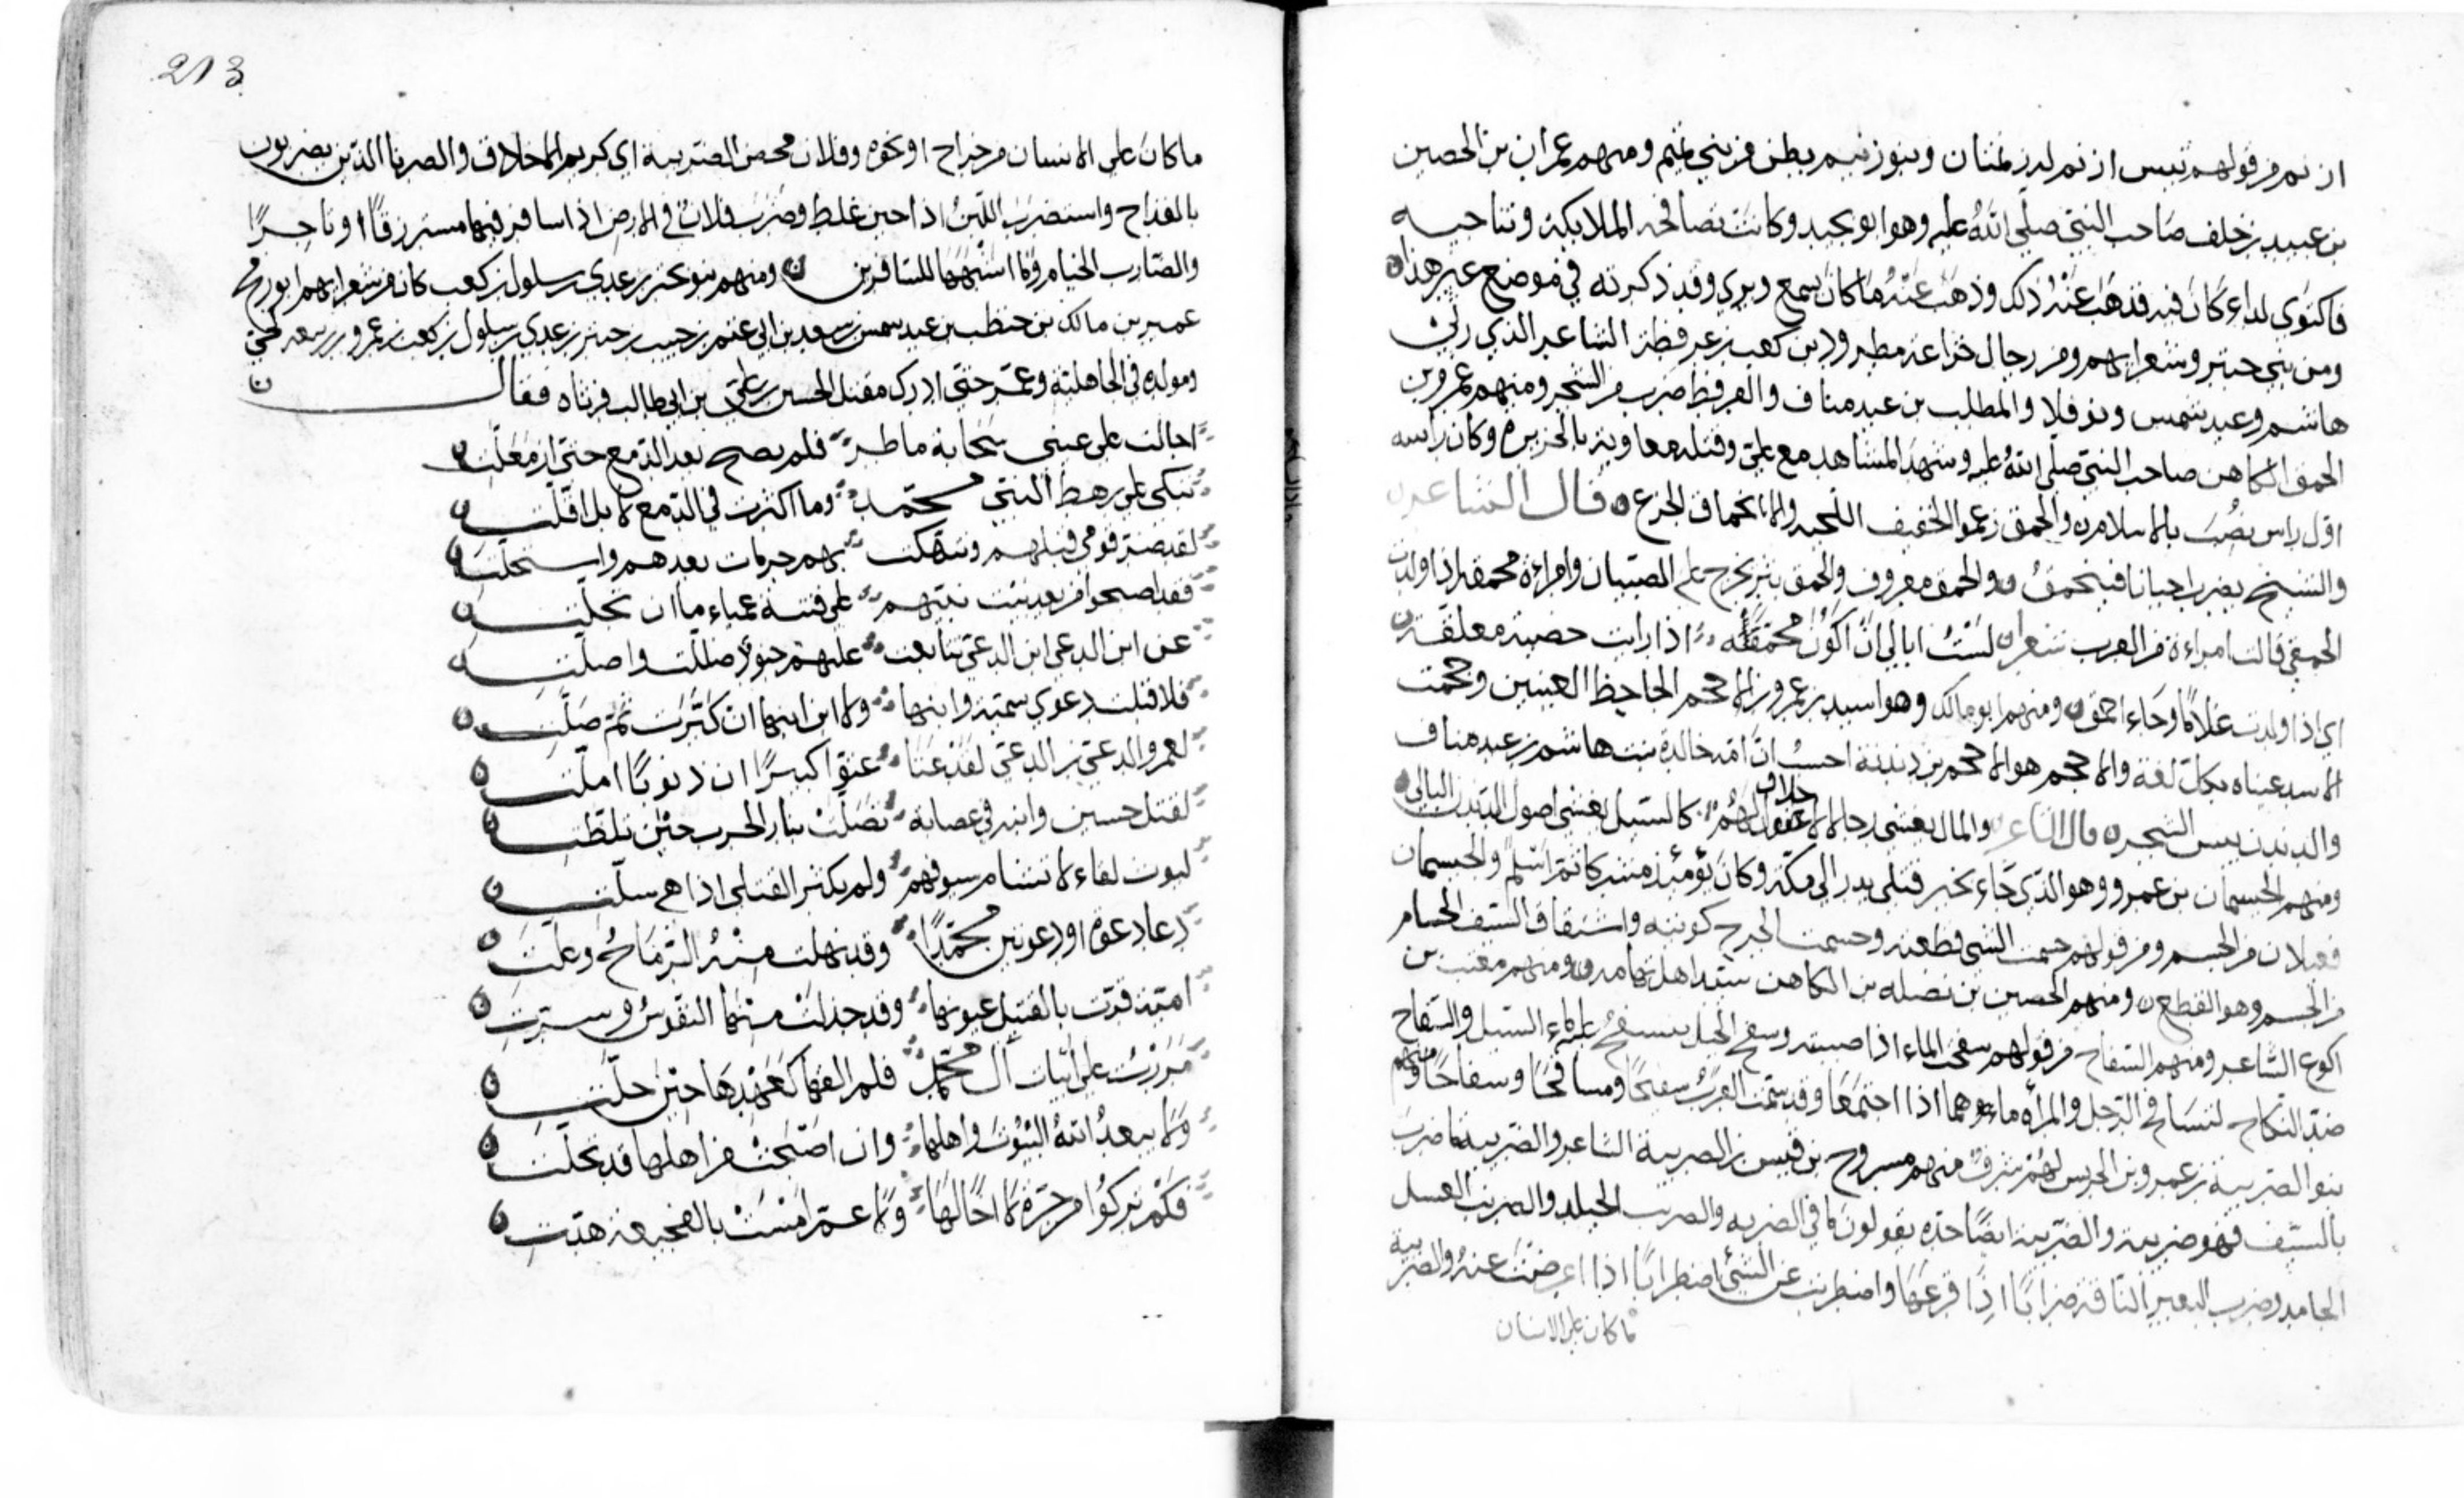 از نم من قولهم تيس ازنم له زنمتان وبنو زنيم بطن من بني غنم ومنهم عمران بن الحصين
بن عبيد بن خلف صاحب النبي صلى الله عليه وهو ابو نجيد وكانت تصافحه الملايكة وتناجيه
فاكتوى لداء كان فيه فذهب عنه ذلك وذهب عنه ما كان يسمع ويرى وقد ذكرته في موضع غير هذا
ومن بني حبتر وشعرايهم ومن رجال خزاعة مطرود بن كعب بن عرفطة الشاعر الذي رثى
هاشم وعبد شمس ونوفلا والمطلب بن عبد مناف والعرفط ضرب من الشجر ومنهم عمرو بن
الحمق الكاهن صاحب النبي صلى الله عليه وشهد المشاهد مع علي وقتله معاوية بالجزيرة وكان راسه
اول راس نصب بالاسلام والحمق زعموا الخفيف اللحية والانحماق الجزع قال الشاعر
والشيخ يضرب احيانا فينحمق والحمق معروف والحمق بثر يخرج على الصبيان وامراة محمقة اذا ولدت
الحمقى قالت امراءة من العرب شعرا لست ابالي ان اكون محمقه اذا رايت خصية معلقة
اي اذا ولدت غلاما وجاء احمق ومنهم ابو مالك وهو اسيد بن عمرو بن الاحجم الجاحظ العينين وحجمت
الاسد عيناه بكل لغة والاحجم هو الاحجم بن دندنة احسب ان امه خالدة بنت هاشم بن عبد مناف
والدندن يبس الشجر قال الشاعر والمال يغشى رجالا لا خلاق لهم كالسيل يغشى اصول الدندن البالي
ومنهم الحيسمان بن عمرو وهو الذي جاء بخبر قتلى بدر الى مكة وكان يومئذ مشركا ثم اسلم والحيسمان
فعيلان من الحسم ومن قولهم حسمت الشي قطعته وحسمت الجرح كويته واشتقاق السيف الحسام
من الحسم وهو القطع ومنهم الحصين بن نضله بن الكاهن سيد اهل تهامة ومنهم معتب بن
اكوع الشاعر ومنهم السفاح من قولهم سفحت الماء اذا صببته وسفح الجبل ينسفح عليه ماء السيل والسفاح
ضد النكاح لتسافح الرجل والمرأة ماءهما اذا اجتمعا وقد سمت العرب سفحا ومسافحا وسفاحا ومنهم
بنو الضريبة بن عمرو بن الحريس لهم شرف منهم مسروح بن قيس بن الضريبة الشاعر والضريبة ما ضرب
بالسيف فهو ضريبة والضريبة ايضا حده يقولون كا في الضريبه والضريب الجليد والضريب العسل
الجامد وضرب البعير الناقة ضرابا اذا قرعها واضطربت عن الشئ اضطرابا اذا اعرضت عنه والضريبة
ما كان على الانسان
213
ما كان على الانسان من خراج او نحوه وفلان محض الضريبة اي كريم الاخلاق والضربا الذين يضربون
بالقداح واستضرب اللبن اذا حين غلظ وضرب فلان في الارض اذا سافر فيها مسترزقا او تاجرا
والضارب الخيام وما اشبهها للمسافرين ومنهم بنو حبتر بن عدي بن سلول بن كعب كان من شعرايهم ابو رمح
عمير بن مالك بن حنظب بن عبد شمس بن سعد بن ابي غنم بن حبيب بن حبتر بن عدي بن سلول بن كعب بن عمرو بن ربيعه لحي
ومولده في الجاهلية وعمر حتى ادرك مقتل الحسين بن علي بن ابي طالب فرثاه فقال
اجالت على عيني سحابة ماطر فلم يصح بعد الدمع حتى ازمعلت
تبكي على رهط النبي محمد وما اكثرت في الدمع لا بل اقلت
لقد ضر قومي قبلهم وتهتكت بهم حرمات بعدهم واستحلت
فقد اصبحوا من بعد بيت نبيهم على فتنة عمياء ما ان تجلت
عن ابن الدعي ابن الدعي تتابعت عليهم جنود ضللت واضلت
فلا قبلت دعوى سمية وابنها ولا ابن ابنها ان كبرت ثم صلت
لعمرو الدعي بن الدعي لقد عتا عتوا كبيرا ان ذنوبا املت
لقتل حسين وابنه في عصابة تصلت بنار الحرب حين تلظت
ليوث لقاء لا تشام سيوفهم ولم يكثر القتلى اذا هي سلت
دعا دعوة او دعوتين محمدا وقد نهلت منه الرماح وعلت
امية قرت بالقتيل عيونها وقد جذلت منها النفوس وسرت
مررت على ابيات ال محمد فلم الفها كعهدها حين حلت
ولا يبعد الله البيوت واهلها وان اصبحت من اهلها قد تخلت
فكم تركوا من حرة لا اخا لها ولا عم امست بالفجيعة هدت